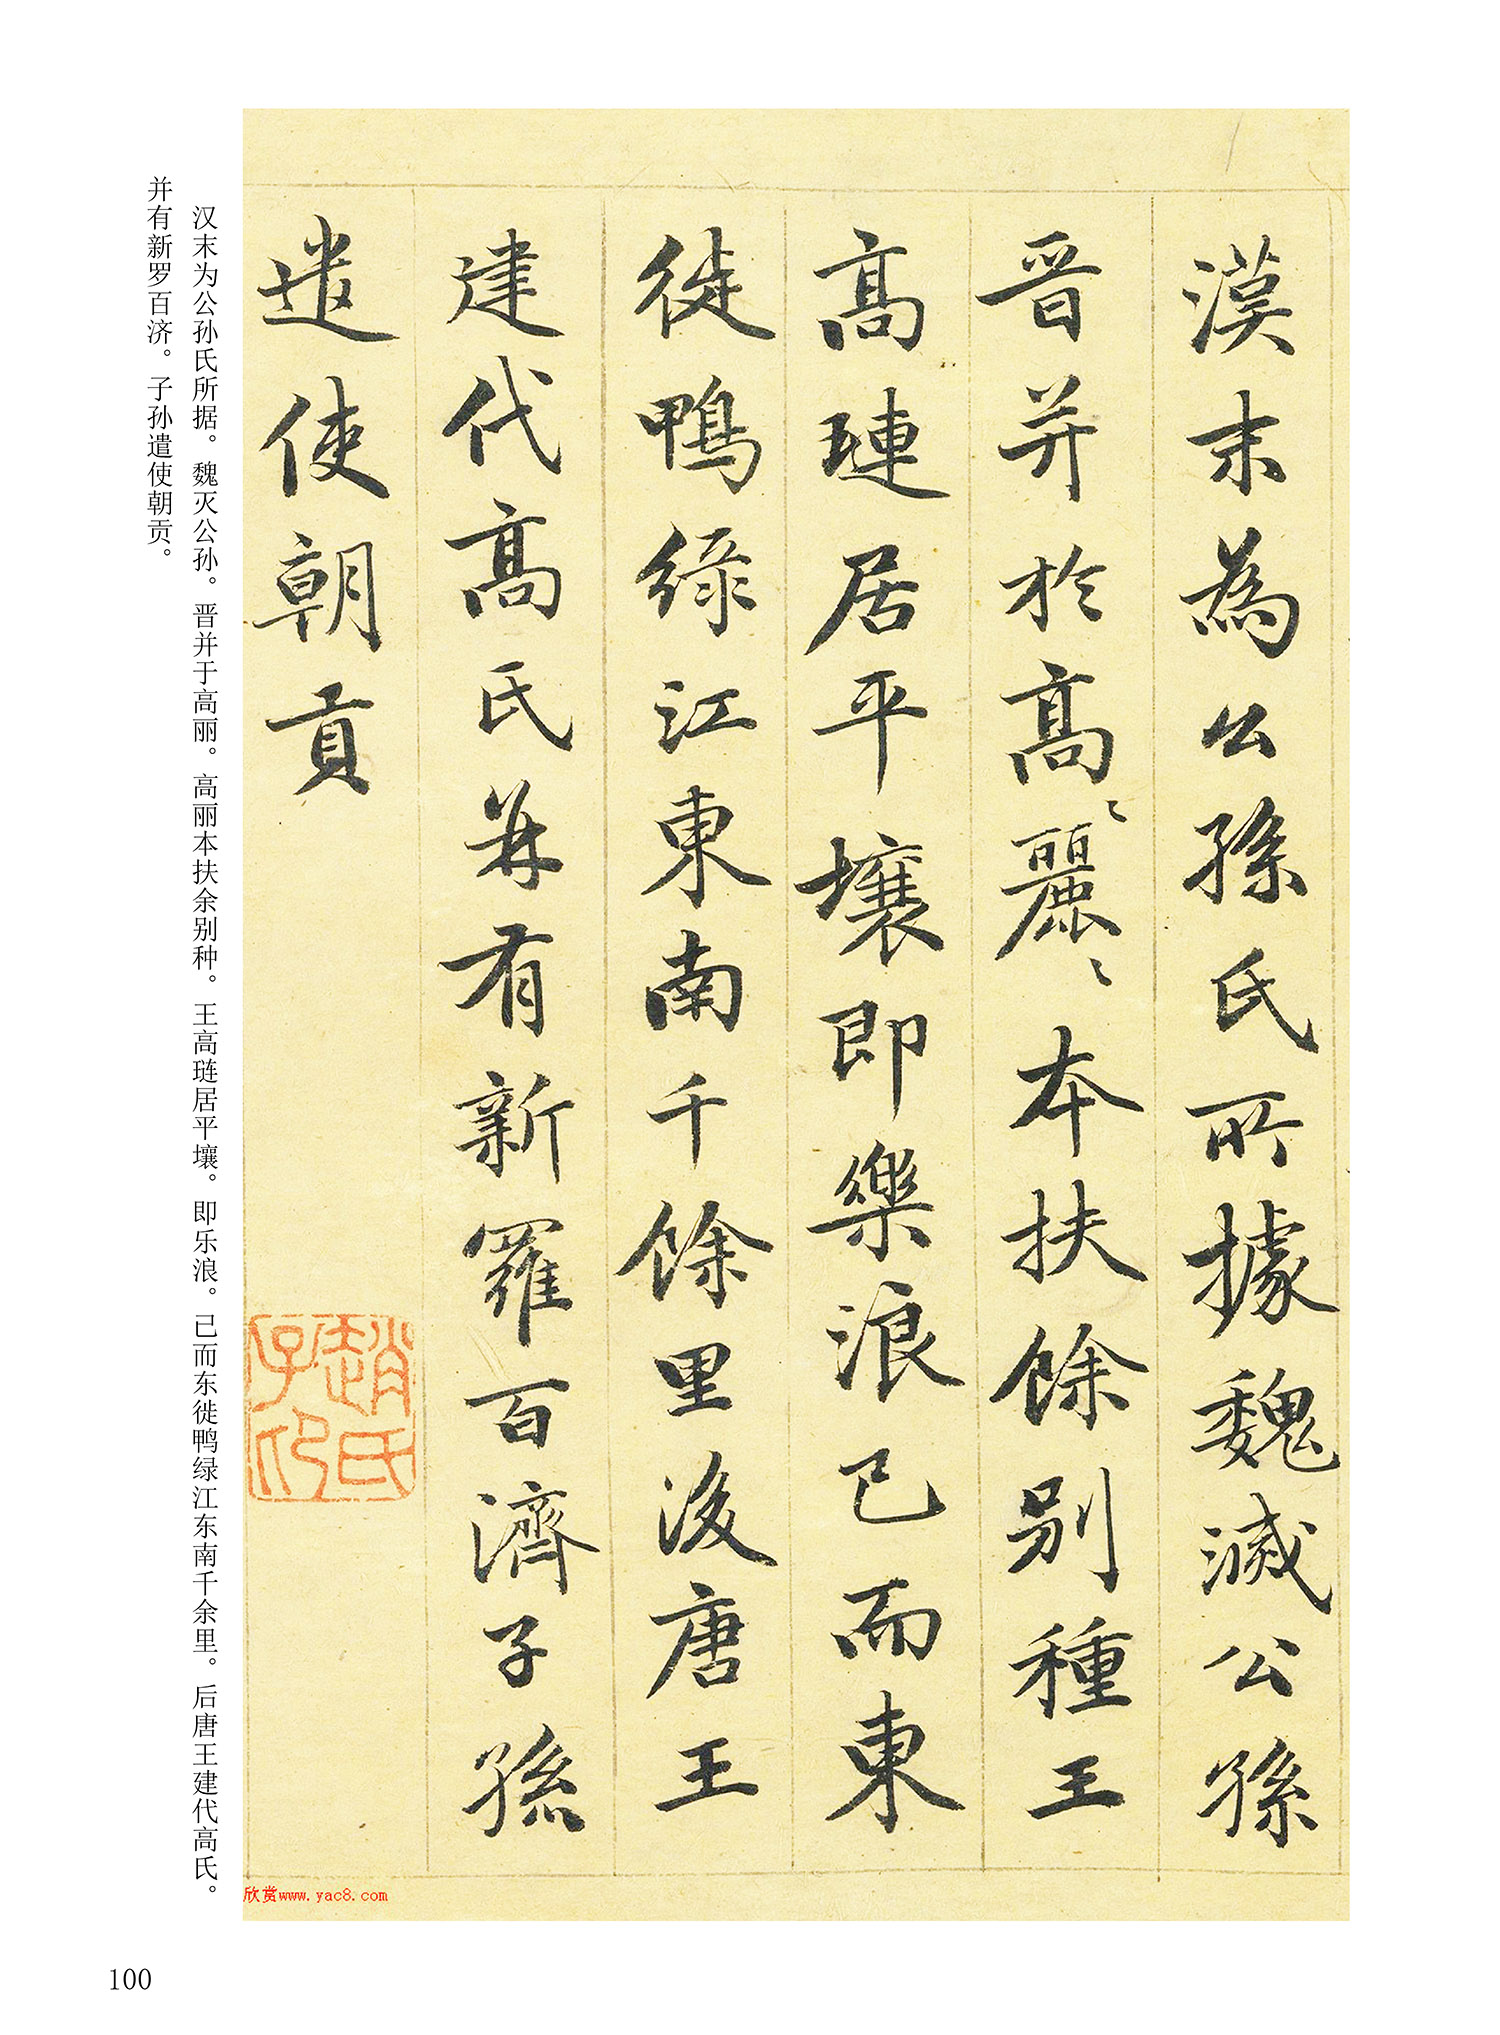 漠末為公孫氏所據魏滅公孫
晉并於高〻麗〻本扶餘别種王
高璉居平壤即樂浪已而東
徙鴨緑江東南千餘里後唐王
建代高氏并有新羅百濟子孫
遣使朝貢
趙氏子印
汉末为公孙氏所据。魏灭公孙。晋并于高丽。高丽本扶余别种。王高琏居平壤。即乐浪。已而东徙鸭绿江东南千余里。后唐王建代高氏。
并有新罗百济。子孙遣使朝贡。
欣赏www.yac8.com
100